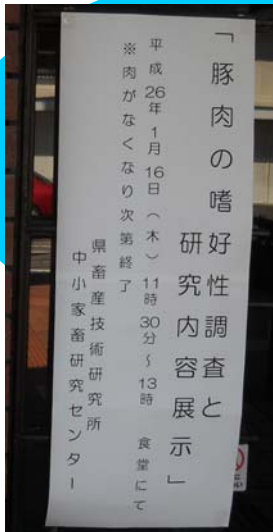 「豚肉の嗜好性調査と
研究内容展示」
平成26年1月16日(木)11時30分~13時 食堂にて
※肉がなくなり次第終了
県畜産技術研究所
中小家畜研究センター